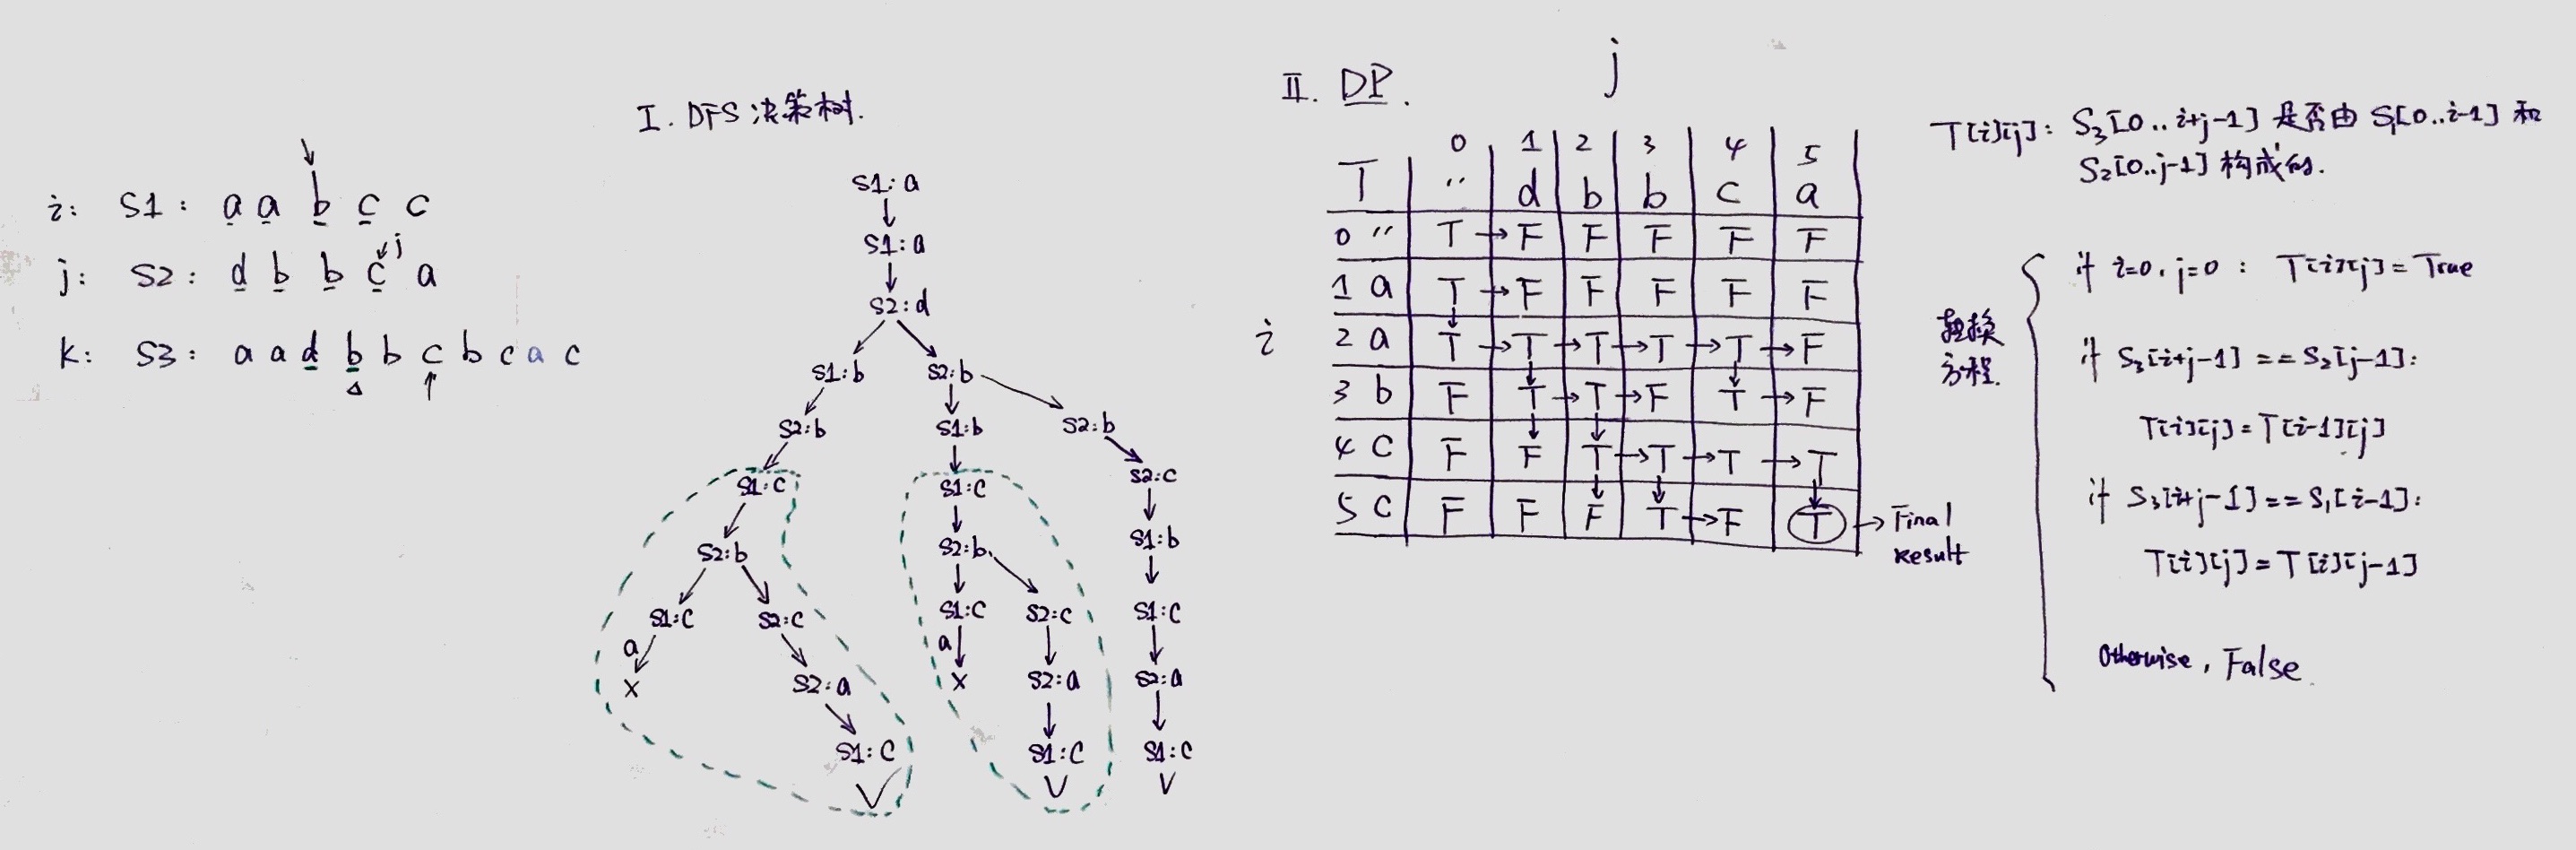 i: S1: a a b c c
j
j: S2: d b b c a
k: S3: a a d b b c b c a c
I. DFS 决策树.
S1:a
S1:a
S2:d
S1:b S2:b
S2:b S1:b S2:b
S1:c S1:c S2:c
S2:b S2:b S1:b
S1:c S2:c S1:c S2:c S1:c
a a
x S2:a x S2:a S2:a
S1:c S1:c S1:c
V V V
II. DP.
j
0 1 2 3 4 5
T '' d b b c a
0 '' T → F F F F F
1 a T → F F F F F
i
2 a T → T → T → T → T → F
3 b F T → T → F T → F
4 c F F T → T → T → T
5 c F F F T → F T → Final
Result
T[i][j]: S3[0..i+j-1] 是否由 S1[0..i-1] 和
S2[0..j-1] 构成的.
转换
方程.
if i=0, j=0 : T[i][j] = True
if S3[i+j-1] == S2[j-1]:
T[i][j] = T[i-1][j]
if S3[i+j-1] == S1[i-1]:
T[i][j] = T[i][j-1]
Otherwise, False.